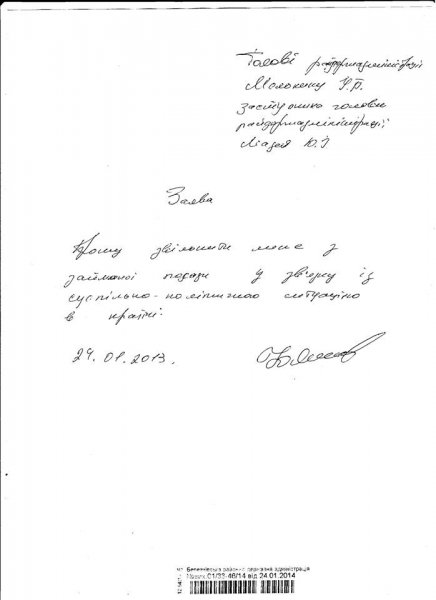 Голові райдержадміністрації
заступника голови
райдержадміністрації
Заява
Прошу звільнити мене з
займаної посади у звʼязку із
суспільно-політичною ситуацією
в країні.
24.01.2013.
Березнівська районна державна адміністрація
01/33-46/14 від 24.01.2014